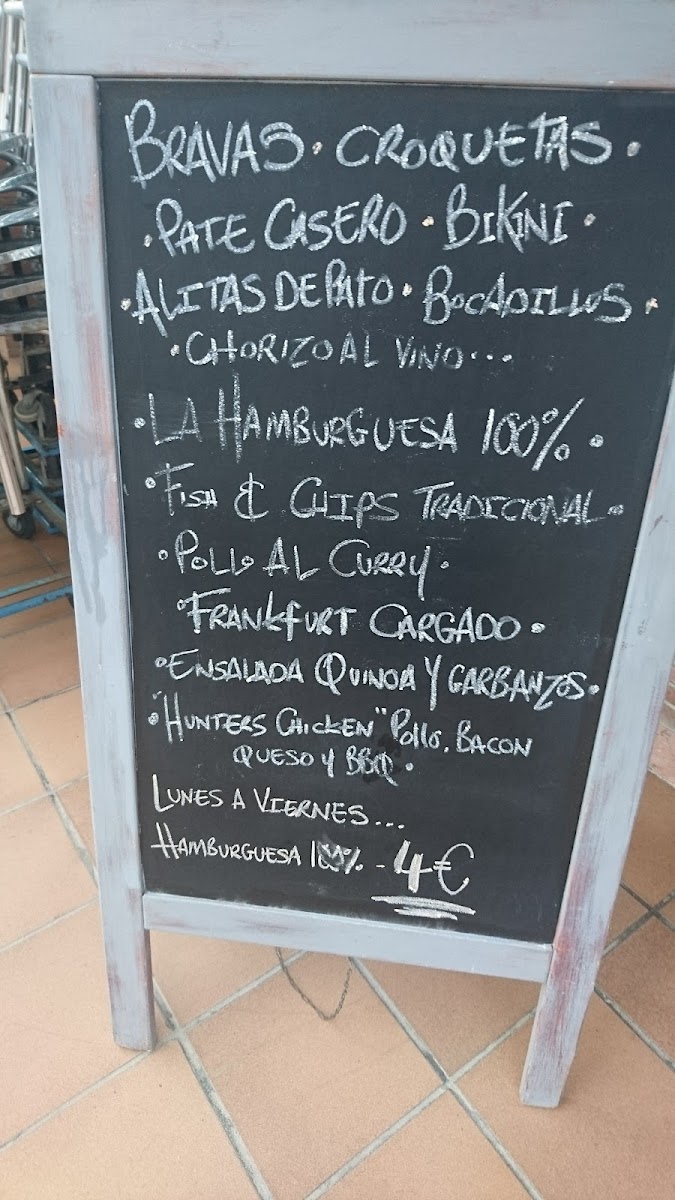 BRAVAS · CROQUETAS ·
· PATE CASERO · BIKINI ·
· ALITAS DE PATO · BOCADILLOS ·
· CHORIZO AL VINO...
· LA HAMBURGUESA 100% ·
· FISH & CHIPS TRADICIONAL ·
· POLLO AL CURRY ·
· FRANKFURT CARGADO ·
· ENSALADA QUINOA Y GARBANZOS ·
· "HUNTERS CHICKEN" POLLO, BACON
QUESO Y BBQ ·
LUNES A VIERNES...
HAMBURGUESA 100% - 4€